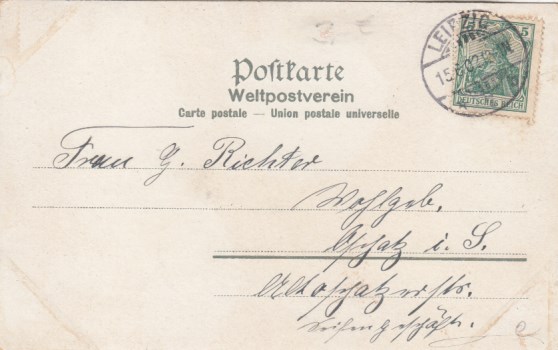 LEIPZIG
5
15.
02.
DEUTSCHES REICH
Postkarte
Weltpostverein
Carte postale — Union postale universelle
Frau G. Richter
Wohlgeb.
Oschatz i. S.
Altoschatzerstr.
Seifengeschäft.